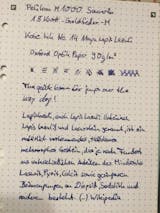 Pelikan M1000
18 Karat - Goldfeder - M
Lapis Lazuli
Oxford Optik Paper 90g/m²
The quick brown fox jumps over the
lazy dog!
Lapislazuli, auch Lapis Lazuli
Lapis lazuli und genannt, ist ein
natürlich vorkommendes, tiefblaues
metamorphes Gestein, das je nach Fundort
aus unterschiedlichen Anteilen der Minerale
Lasurit, Pyrit, Calcit sowie geringeren
Beimengungen an Diopsid, Sodalith und
anderen besteht. (-) Wikipedia